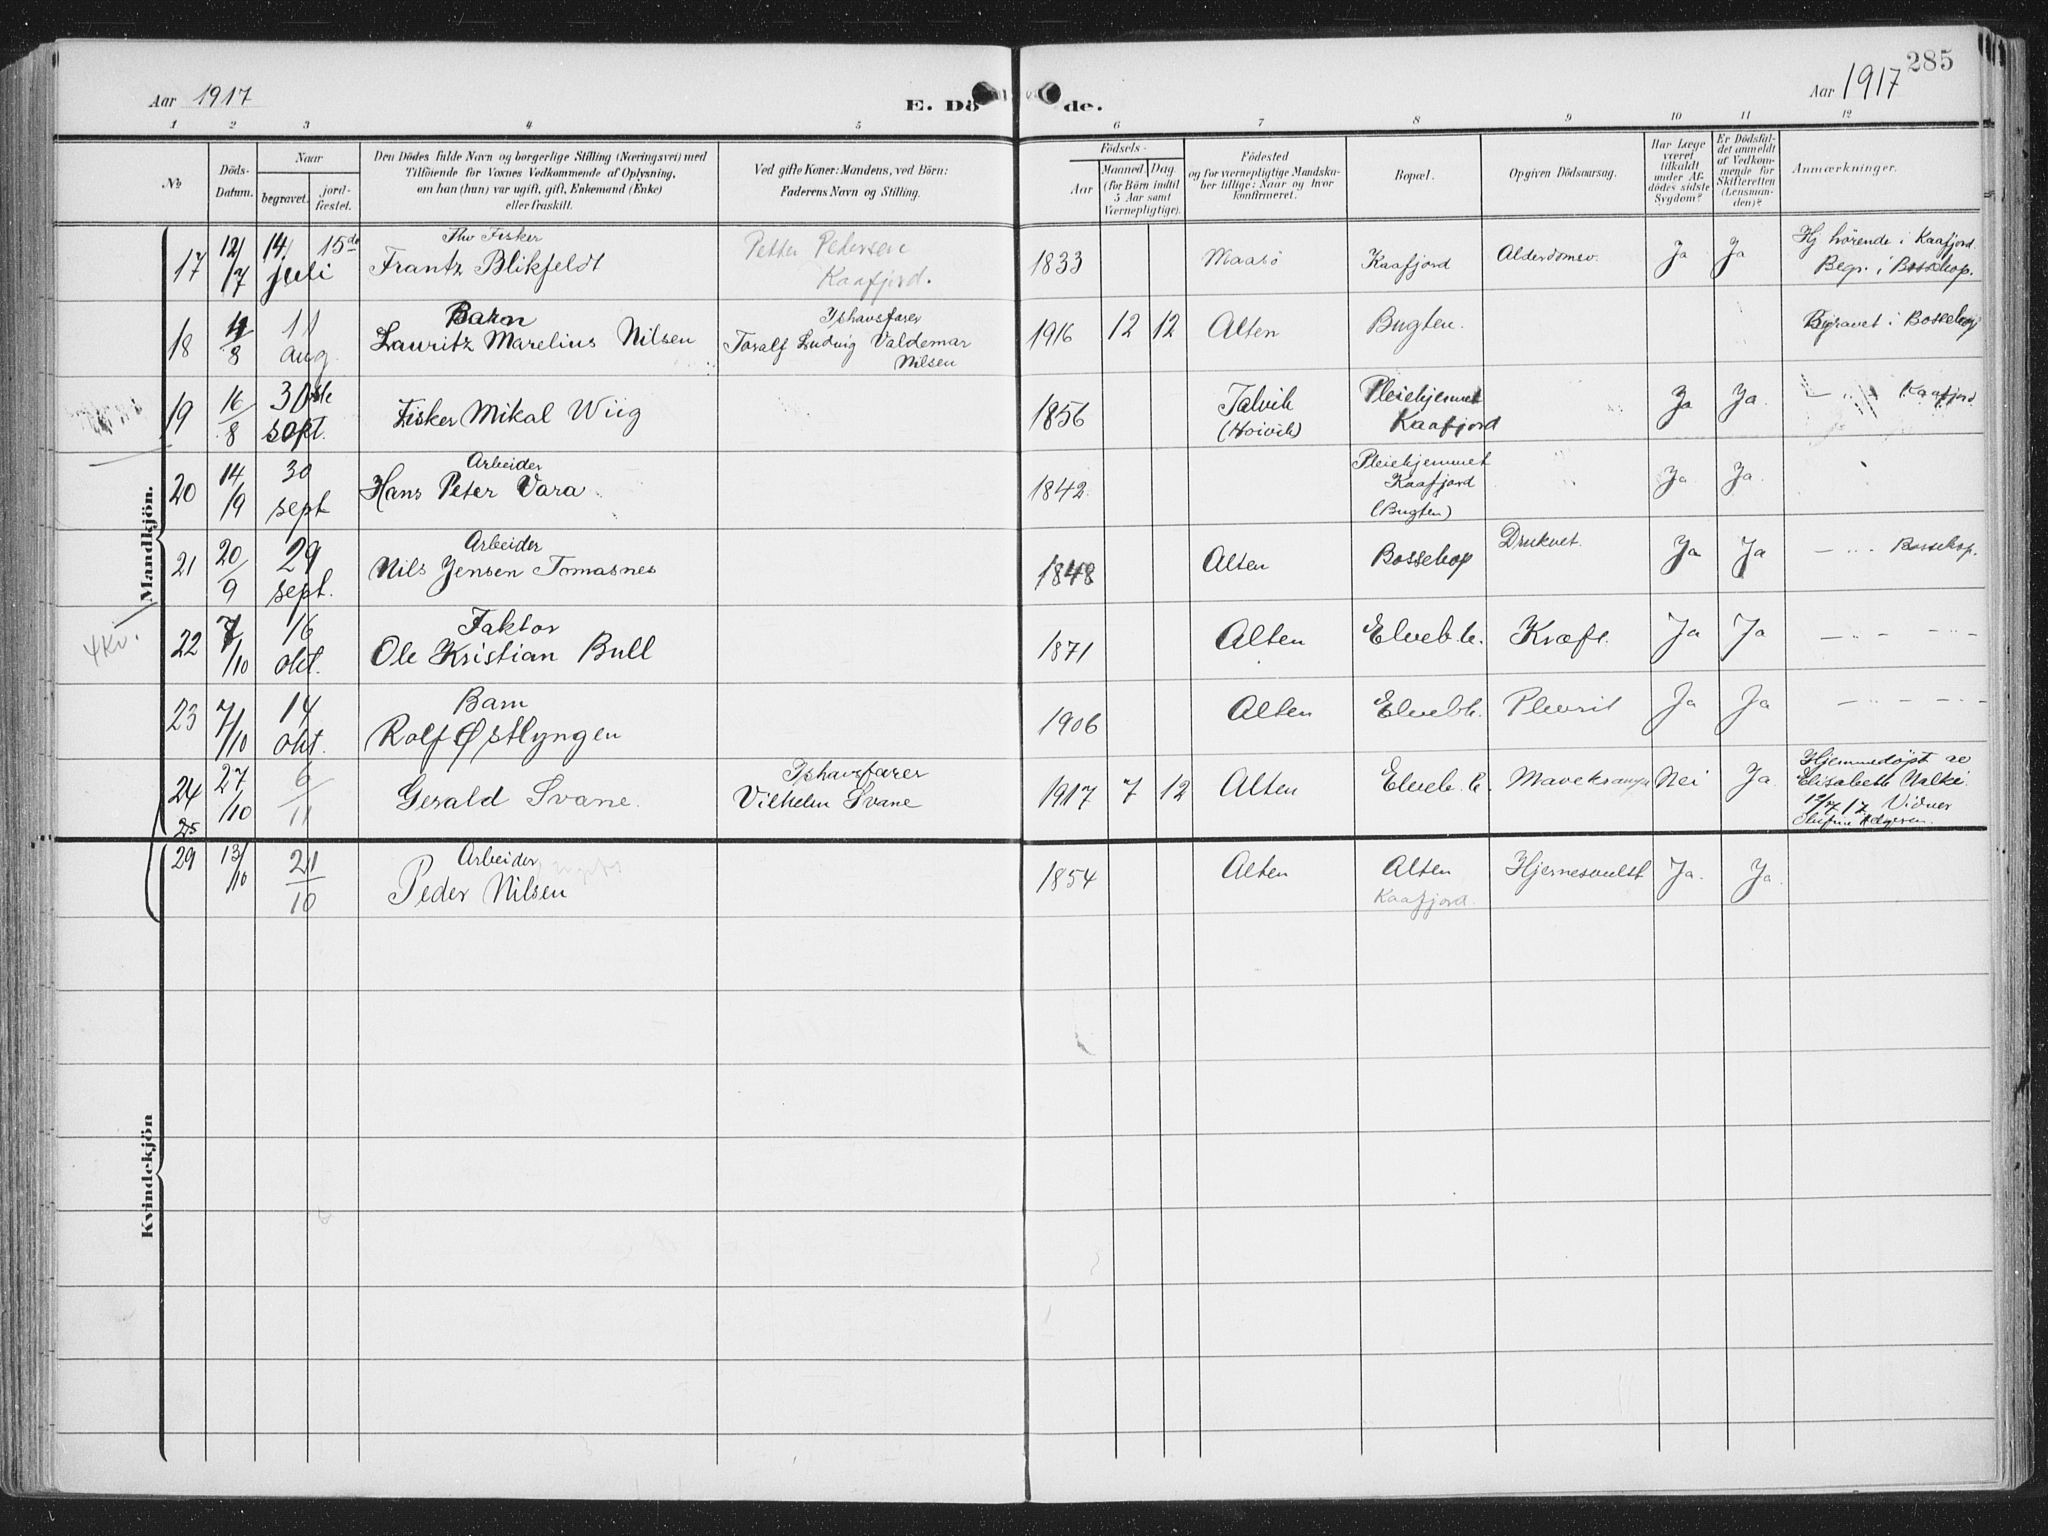 285
Aar 1917
E. Dö de.
Aar 1917
1 2 3 4 5 6 7 8 9 10 11 12
No
Döds-Datum.
Naar
begravet.
jord-fæstet.
Den Dödes fulde Navn og borgerlige Stilling (Næringsvei) med
Tilföiende for Voxnes Vedkommende af Oplysning,
om han (hun) var ugift, gift, Enkemand (Enke)
eller fraskilt.
Ved gifte Koner: Mandens, ved Börn:
Faderens Navn og Stilling.
Födsels-
Aar
Maaned Dag
(for Börn indtil
5 Aar samt
Værnepligtige).
Födested
og for værnepligtige Mandska-
ber tillige: Naar og hvor
konfirmeret.
Bopæl.
Opgiven Dödsaarsag.
Har Læge
været
tilkaldt
under Af-
dödes sidste
Sygdom?
Er Dödsfal-
det anmeldt
af Vedkom-
mende for
Skifteretten
(Lensman-
den)?
Anmærkninger.
Mandkjön.
17 12/7 14/ juli 15de Fisker Frantz Blikfeldt Petter Petersen Kaafjord. 1833 Maasö Kaafjord Alderdomsv. Ja Ja Hj hörende i Kaafjord. Begr. i Bossekop.
18 4/8 11 aug. Barn Lauritz Marelius Nilsen Ishavsfarer Toralf Ludvig Valdemar Nilsen 1916 12 12 Alten Bugten. Begravet i Bossekop
19 16/8 30 sept. Fisker Mikal Wiig 1856 Talvik Pleiehjemmet Kaafjord Ja Ja. — " — Kaafjord.
20 14/19 30 sept Arbeider Hans Peter Vara 1842 Pleiehjemmet Kaafjord (Bugten) Ja Ja
21 20/9 29 sept. Arbeider Nils Jensen Tomasnes 1848 Alten Bossekop Druknet. Ja Ja — " Bossekop.
4 Kv.
22 7/10 16 okt. Faktor Ole Kristian Bull 1871 Alten Elveb.k. Kræft. Ja Ja — " — " —
23 7/10 14 okt. Barn Rolf Østlyngen 1906 Alten Elvebk. Plevrit Ja Ja — " — " —
24 27/10 6/11 Gerald Svane. Ishavsfarer Vilhelm Svane 1917 7 12 Alten Elveb.k. Nei Ja. Hjemmedøpt av Elisabeth 12/7 17. Vidner
25
Kvindekjön
29 13/10 21/10 Arbeider Peder Nilsen 1854 Alten Alten Kaafjord. Hjernesvulst Ja. Ja.